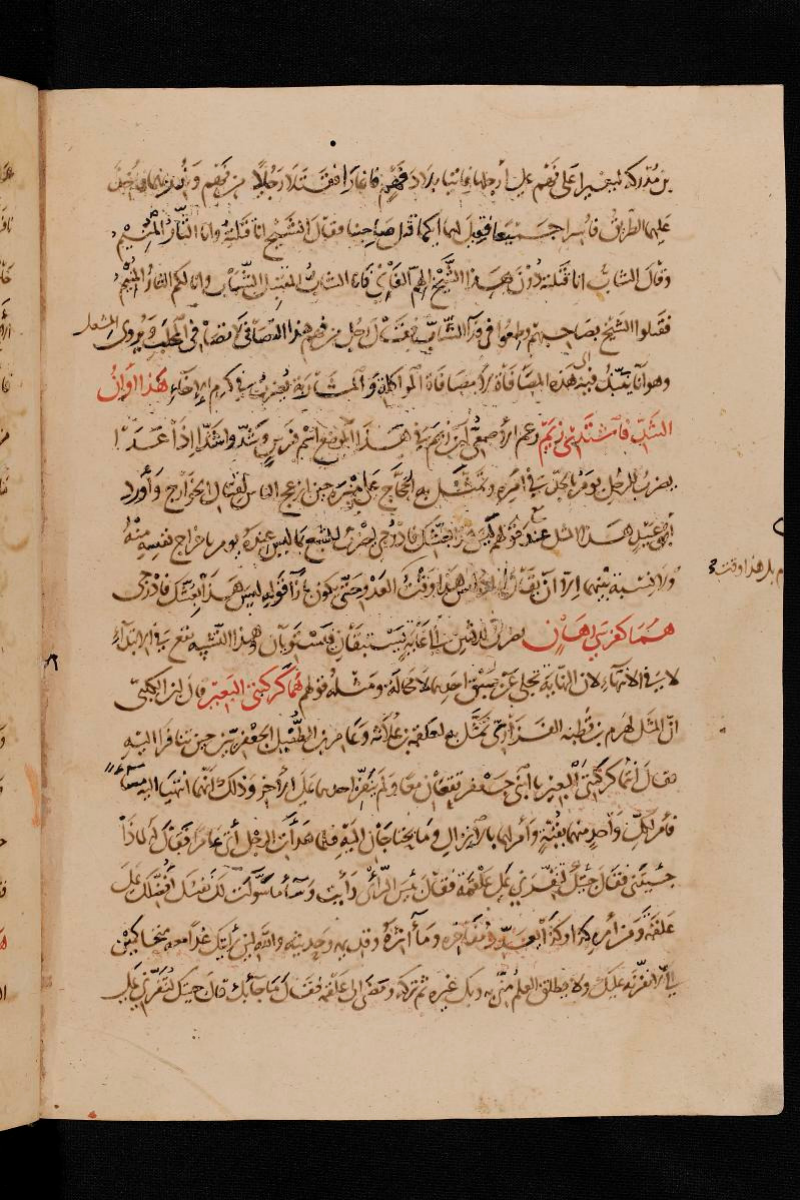 بن مدركة ليغيرا على فهم على أرجلهما فاتيا بلاد فهم فاغارا فقتلا رجلا من فهم ونذر بهما فاخذ
عليهما الطريق فاسرا جميعا فقيل لهما ايكما قتل صاحبنا فقال الشيخ انا قتلته وانا الثأر المنيم
وقال الشاب انا قتلته دون هذا الشيخ الهم الفاني فانا الشاب المقتبل الشباب وانا لكم الثأر المنيم
فقتلوا الشيخ بصاحبهم وطمعوا في فداء الشاب فقال رجل من فهم هذا التصافي لا تصافي المحلب ويروى المشعل
وهو اناء ينبذ فيه هذه المصافاة لا مصافاة المواكلة والمشاربة يضرب في كرم الإخاء هذا اوان
الشد فاشتدي زيم زعم الاصمعي ان زيم في هذا الموضع اسم فرس وشد واشتد اذا عدا
يضرب للرجل يؤمر بالجد في امره وتمثل به الحجاج على منبره حين ازعج الناس لقتال الخوارج وأورد
أبو عبيد هذا المثل عند قولهم ليس هذا بعشك فادرجي يضرب للمتشبع بما ليس عنده يؤمر باخراج نفسه منه
ولا نسبة بينهما إلا أن يقال ليس هذا وقت العدو حتى يكون بازاء قوله ليس هذا بعشك فادرجي
بل هذا وقت
هما كفرسي رهان يضرب للاثنين الى غاية يستبقان فيستويان وهذا التشبيه يقع في الابتداء
لا في الانتهاء لان النهاية تجلى عن سبق احدهما لا محالة ومثله قولهم هما كركبتي البعير قال ابن الكلبي
ان المثل لهرم بن قطبة الفزاري تمثل به لعلقمة بن علاثة وعامر بن الطفيل الجعفريين حين تنافرا اليه
فقال انتما كركبتي البعير يا ابني جعفر تقعان معا ولم ينفر احدهما على الآخر وذلك انهما انتهيا اليه مساء
فامر لكل واحد منهما بقبة وأمر لهما بالانزال وما يحتاجان اليه فلما هدأت الرجل أتى عامرا فقال له لماذا
جئتني فقال جئتك لتنفرني على علقمة فقال بئس الرأي رأيت وساء ما سولت لك نفسك افضلك على
علقمة ومن امره كذا وكذا يعد مفاخره ومآثره وقديمه وحديثه والله لئن رأيتك غدا معه متحاكمين
الي لانفرنه عليك ولا يطلق العلم مني به وبك غيره ثم تركه ومضى الى علقمة فقال ما جاء بك قال جئتك لتنفرني على